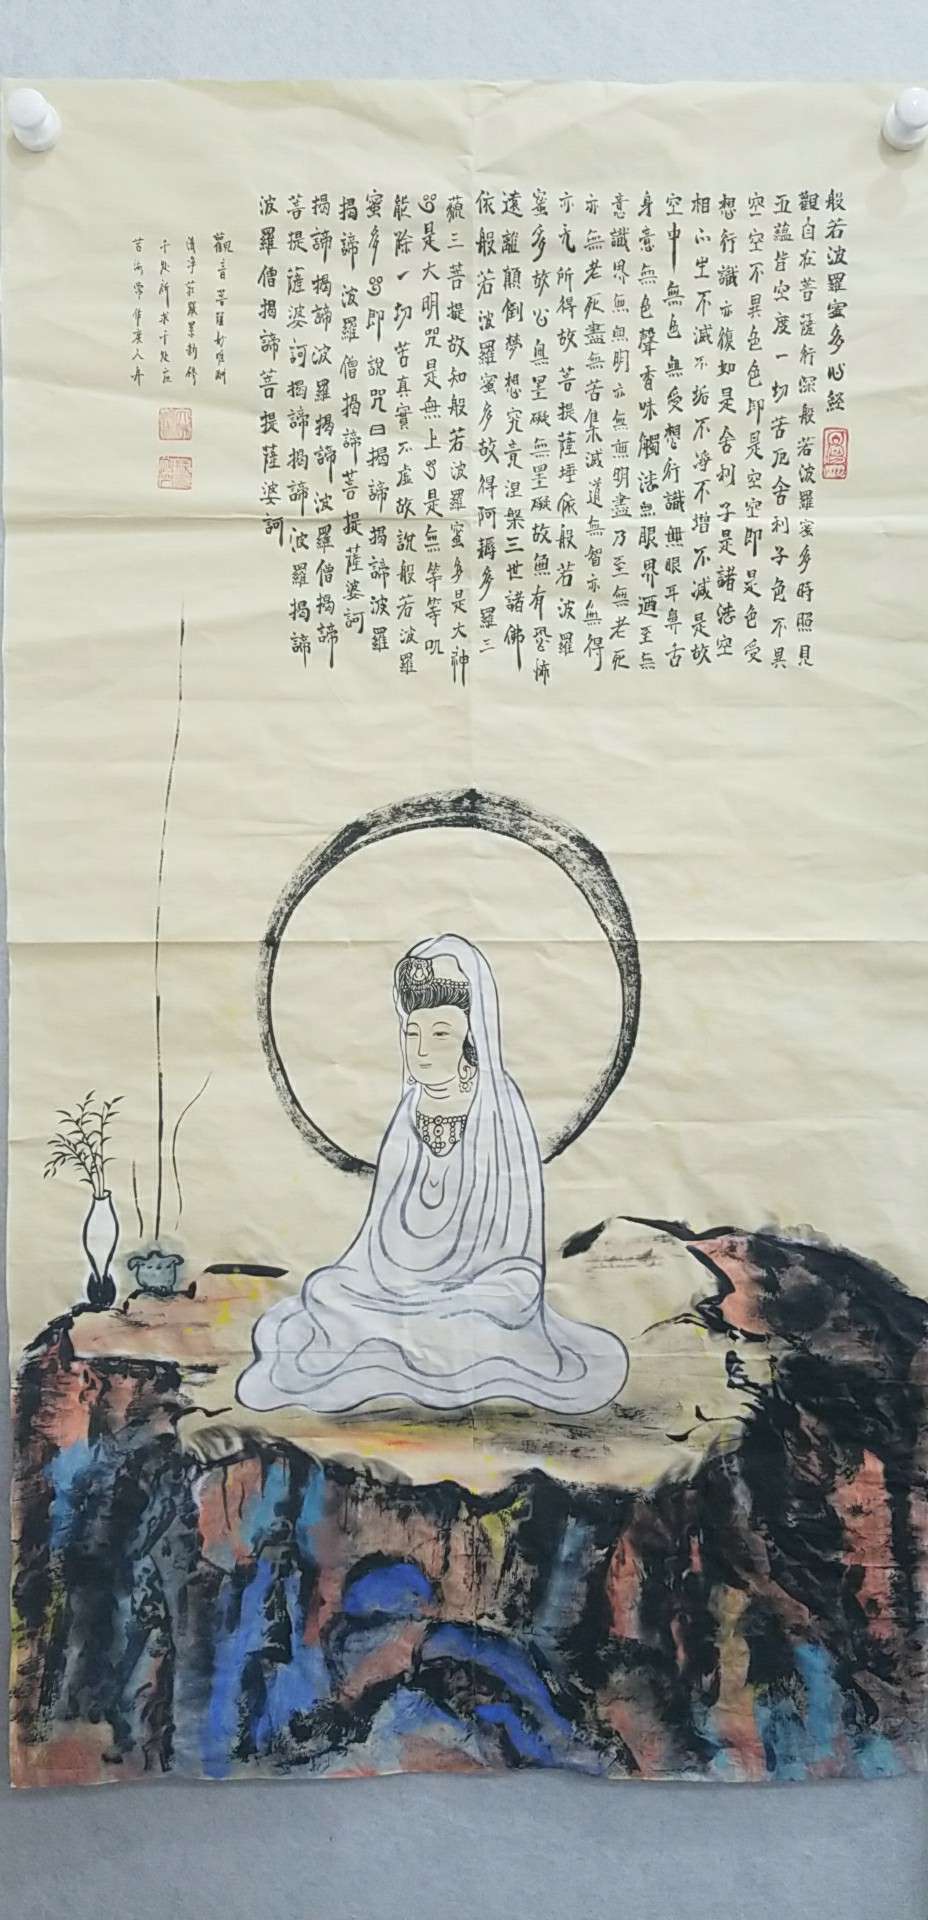 般若波羅蜜多心經
觀自在菩薩行深般若波羅蜜多時照見
五蘊皆空度一切苦厄舍利子色不異
空空不異色色即是空空即是色受
想行識亦復如是舍利子是諸法空
相不生不滅不垢不淨不增不減是故
空中無色無受想行識無眼耳鼻舌
身意無色聲香味觸法無眼界迺至無
意識界無無明亦無無明盡乃至無老死
亦無老死盡無苦集滅道無智亦無得
亦無所得故菩提薩埵依般若波羅
蜜多故心無罣礙無罣礙故無有恐怖
遠離顛倒夢想究竟涅槃三世諸佛
依般若波羅蜜多故得阿耨多羅三
藐三菩提故知般若波羅蜜多是大神
咒是大明咒是無上咒是無等等咒
能除一切苦真實不虛故說般若波羅
蜜多咒即說咒曰揭諦揭諦波羅
揭諦波羅僧揭諦菩提薩婆訶
揭諦揭諦波羅揭諦波羅僧揭諦
菩提薩婆訶揭諦揭諦波羅揭諦
波羅僧揭諦菩提薩婆訶
觀音菩薩妙難酬
清淨莊嚴累劫修
千處祈求千處應
苦海常作度人舟